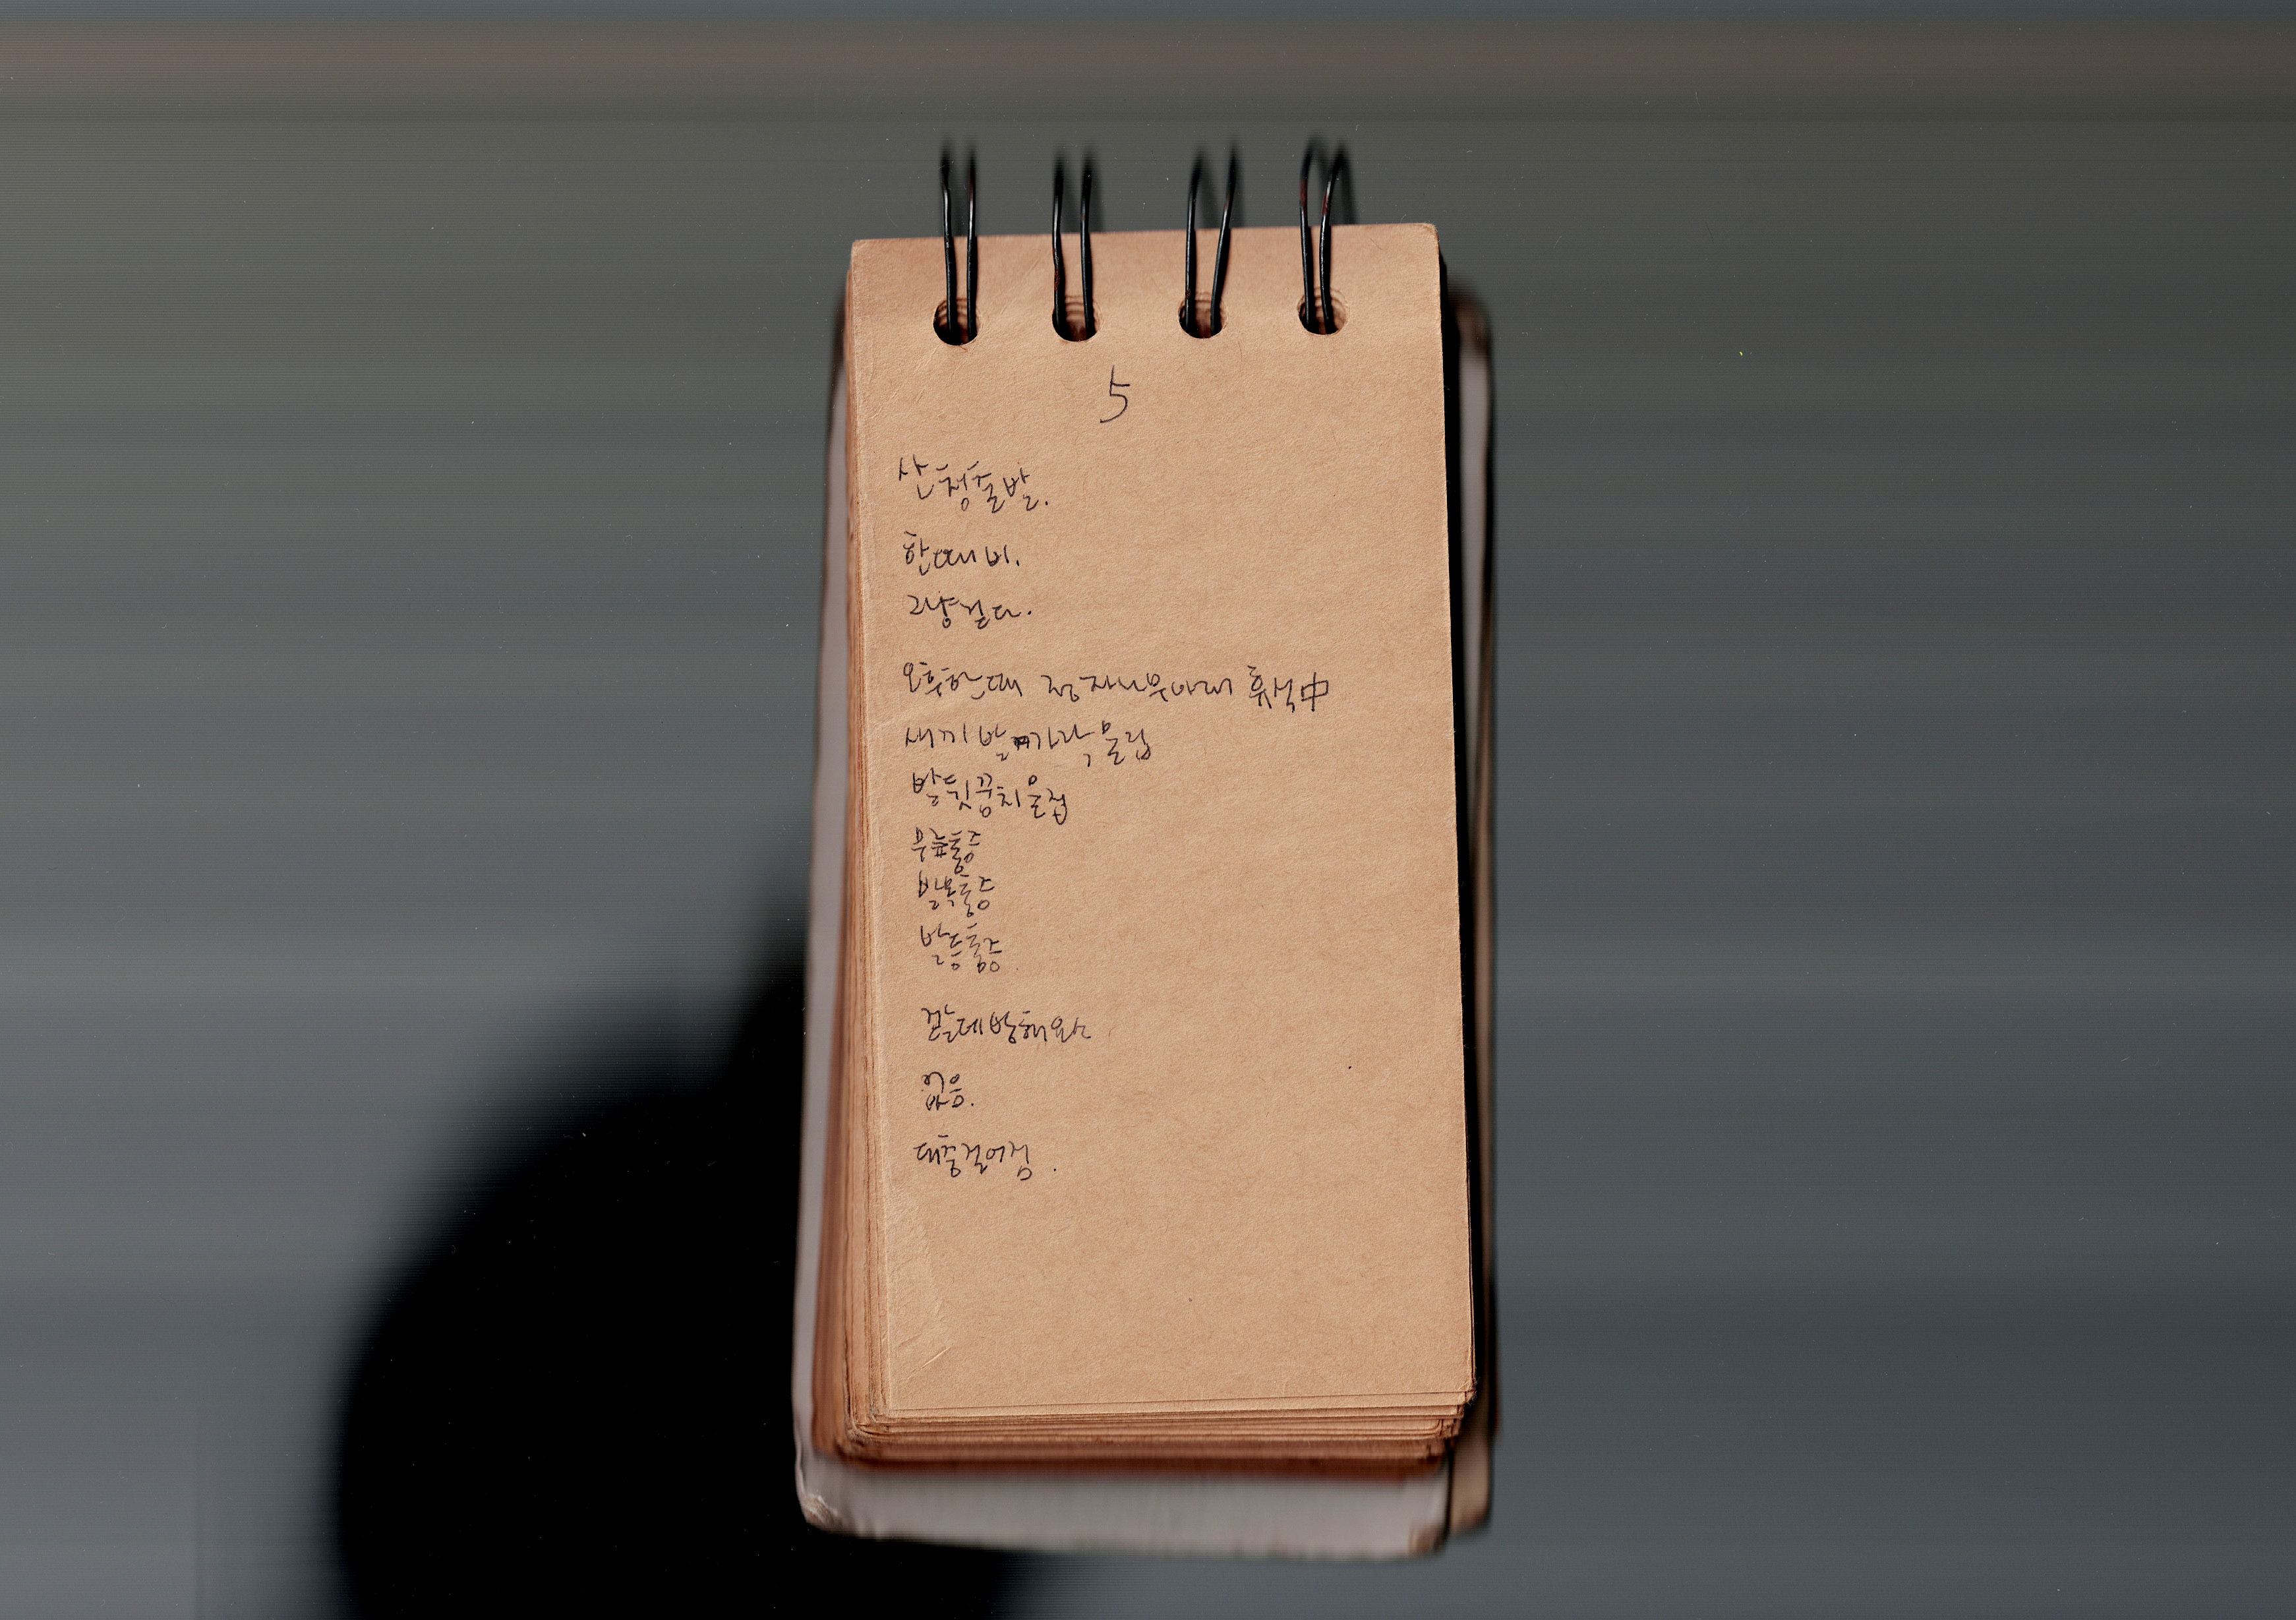 5
산청출발.
한때비.
그냥걷다.
오후한때 정자나무아래 휴식中
새끼발가락, 물집
발뒷꿈치물집
무릎통증
발목통증
발등통증.
걷는데방해요소
없음.
대충걸어짐.